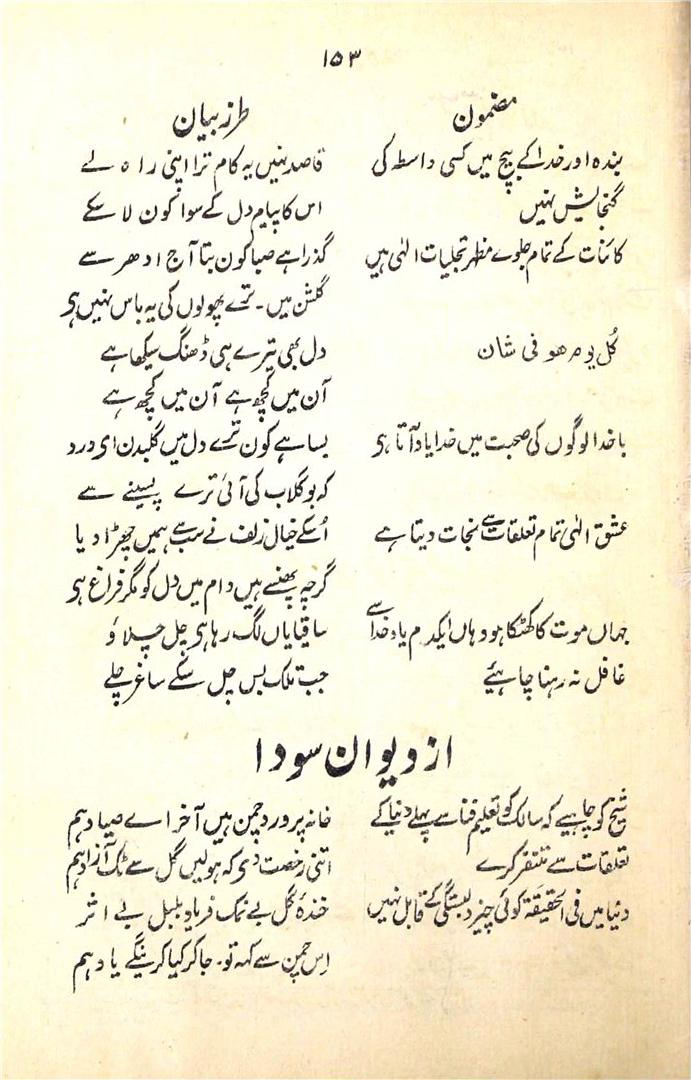 ۱۵۳
مضمون
طرز بیان
بندہ اور خدا کے بیچ میں کسی واسطہ کی
گنجایش نہیں
قاصد نہیں یہ کام ترا اپنی راہ لے
اس کا پیام دل کے سوا کون لا سکے
کائنات کے تمام جلوے مظہر تجلیات الٰہی ہیں
گذرا ہے صبا کون بتا آج ادھر سے
گلشن میں۔ ترے پھولوں کی یہ باس نہیں ہی
کُل یوم ھو فی شان
دل بھی تیرے ہی ڈھنگ سیکھا ہے
آن میں کچھ ہے آن میں کچھ ہے
باخدا لوگوں کی صحبت میں خدا یاد آتا ہی
بسا ہے کون ترے دل میں گلبدن ای درد
کہ بو گلاب کی آئی ترے پسینے سے
عشق الٰہی تمام تعلقات سے نجات دیتا ہے
اُسکے خیال زلف نے سب سے ہمیں چھڑا دیا
گرچہ پھنسے ہیں دام میں دل کو مگر فراغ ہی
جہاں موت کا کھٹکا ہو وہاں ایکدم یاد خدا سے
غافل نہ رہنا چاہئیے
ساقیا یاں لگ رہا ہی چل چلاؤ
جب تلک بس چل سکے ساغر چلے
از دیوان سودا
شیخ کو چاہیے کہ سالک کو تعلیم فنا سے پہلے دنیا کے
تعلقات سے متنفر کرے
خانہ پرورد چمن ہیں آخر اے صیاد ہم
اتنی رخصت دی کہ ہولیں گل سے ٹک آزاد ہم
دنیا میں فی الحقیقۃ کوئی چیز دلبستگی کے قابل نہیں
خندۂ گل بے نمک فریاد بلبل بے اثر
اِس چمن سے کہہ تو۔ جا کر کیا کرینگے یاد ہم